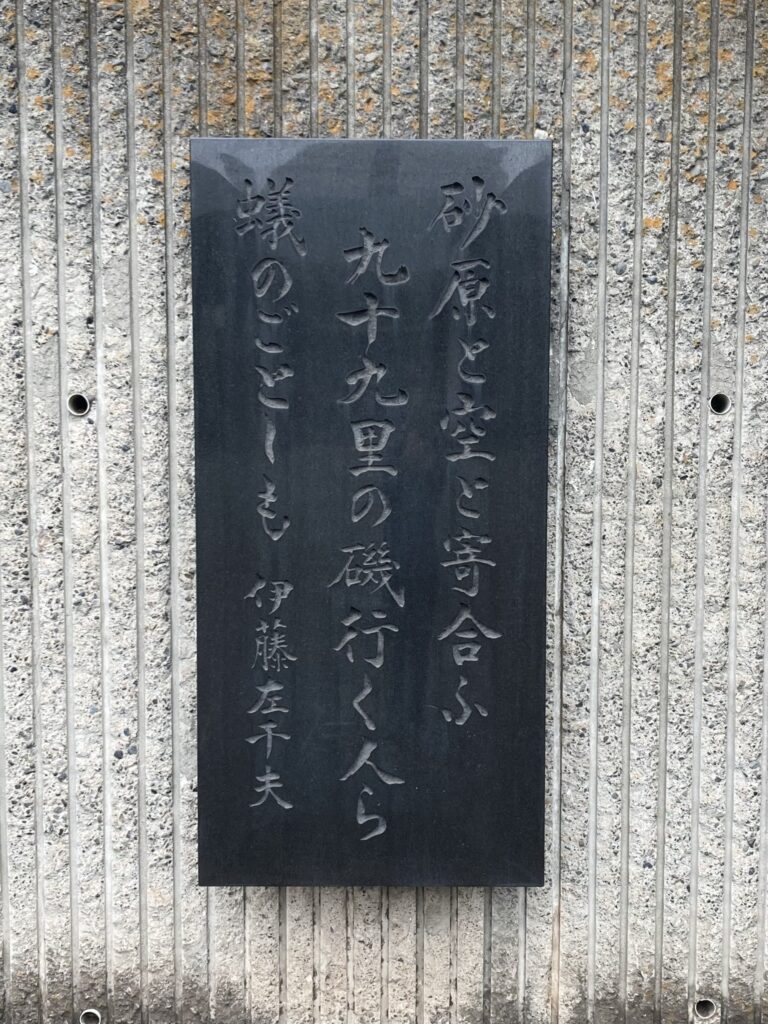 砂原と空と寄合ふ
九十九里の磯行く人ら
蟻のごとしも 伊藤左千夫